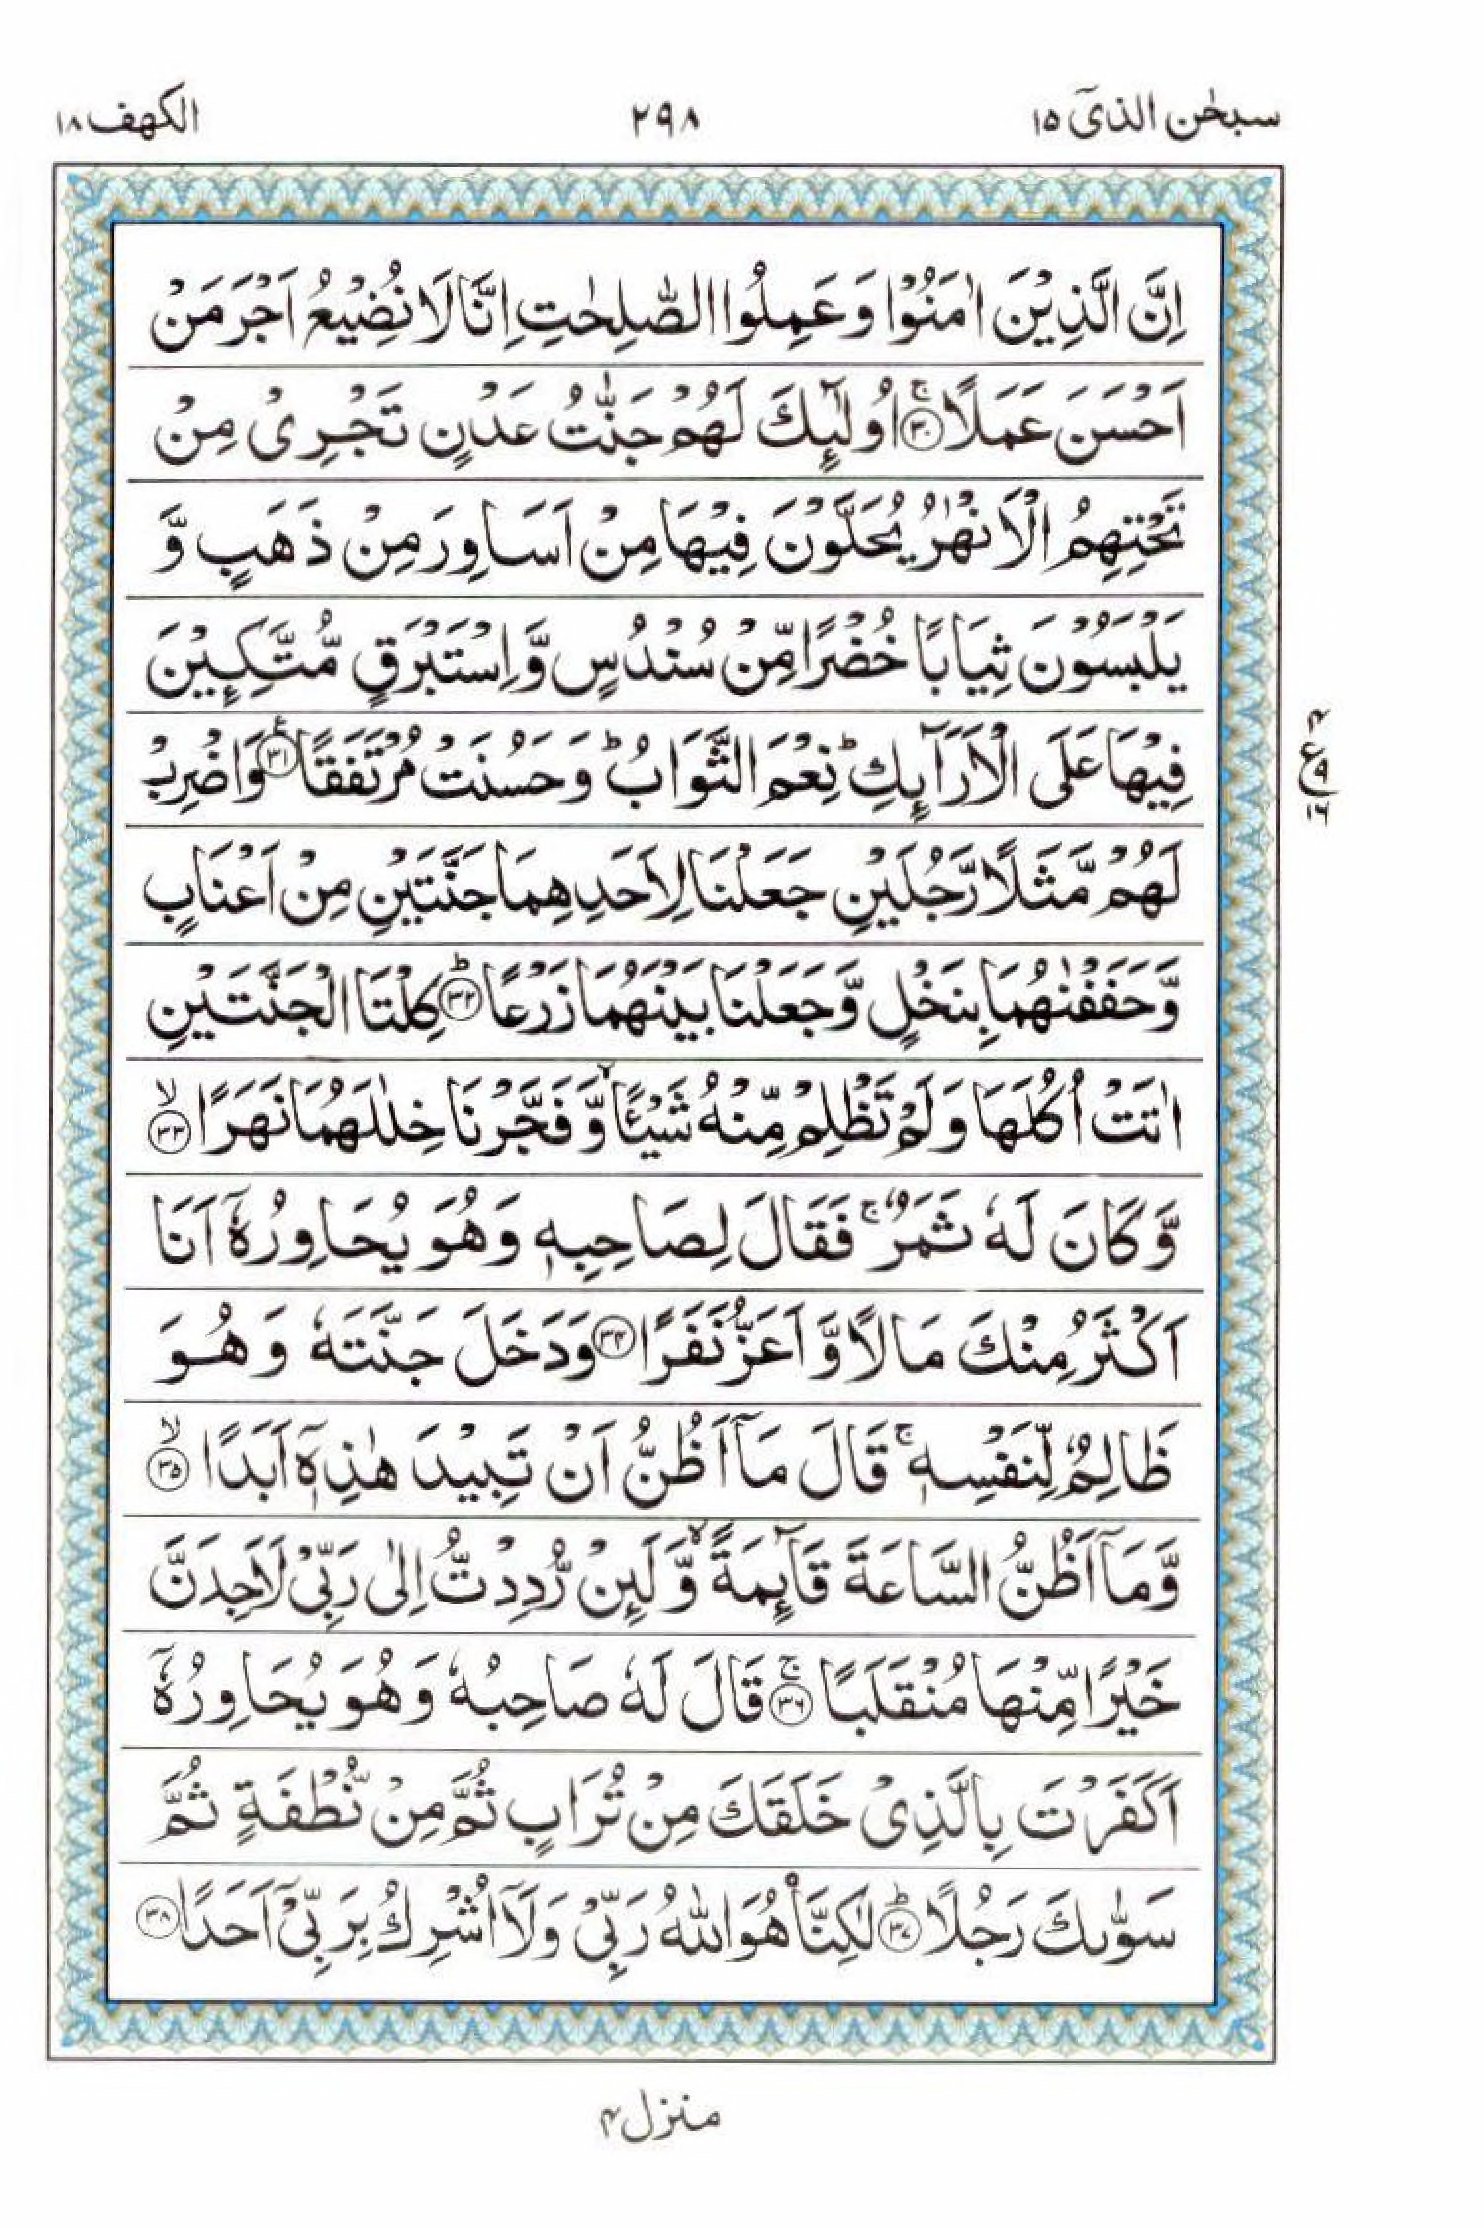 سبحٰن الذیٓ ١٥
٢٩٨
الکهف ١٨
اِنَّ الَّذِيْنَ اٰمَنُوْا وَعَمِلُوا الصّٰلِحٰتِ اِنَّا لَا نُضِيْعُ اَجْرَ مَنْ
اَحْسَنَ عَمَلًا ۚ﴿٣٠﴾ اُولٰٓئِكَ لَهُمْ جَنّٰتُ عَدْنٍ تَجْرِیْ مِنْ
تَحْتِهِمُ الْاَنْهٰرُ يُحَلَّوْنَ فِيْهَا مِنْ اَسَاوِرَ مِنْ ذَهَبٍ وَّ
يَلْبَسُوْنَ ثِيَابًا خُضْرًا مِّنْ سُنْدُسٍ وَّاِسْتَبْرَقٍ مُّتَّكِـِٕيْنَ
فِيْهَا عَلَى الْاَرَآئِكِ ؕ نِعْمَ الثَّوَابُ ؕ وَحَسُنَتْ مُرْتَفَقًا ﴿٣١﴾ وَاضْرِبْ
لَهُمْ مَّثَلًا رَّجُلَيْنِ جَعَلْنَا لِاَحَدِهِمَا جَنَّتَيْنِ مِنْ اَعْنَابٍ
وَّحَفَفْنٰهُمَا بِنَخْلٍ وَّجَعَلْنَا بَيْنَهُمَا زَرْعًا ؕ﴿٣٢﴾ كِلْتَا الْجَنَّتَيْنِ
اٰتَتْ اُكُلَهَا وَلَمْ تَظْلِمْ مِّنْهُ شَيْـًٔا ۙ وَّفَجَّرْنَا خِلٰلَهُمَا نَهَرًا ۙ﴿٣٣﴾
وَّكَانَ لَهٗ ثَمَرٌ ۚ فَقَالَ لِصَاحِبِهٖ وَهُوَ يُحَاوِرُهٗۤ اَنَا
اَكْثَرُ مِنْكَ مَالًا وَّاَعَزُّ نَفَرًا ﴿٣٤﴾ وَدَخَلَ جَنَّتَهٗ وَهُوَ
ظَالِمٌ لِّنَفْسِهٖ ۚ قَالَ مَاۤ اَظُنُّ اَنْ تَبِيْدَ هٰذِهٖۤ اَبَدًا ۙ﴿٣٥﴾
وَّمَاۤ اَظُنُّ السَّاعَةَ قَآئِمَةً ۙ وَّلَئِنْ رُّدِدْتُّ اِلٰى رَبِّیْ لَاَجِدَنَّ
خَيْرًا مِّنْهَا مُنْقَلَبًا ۚ﴿٣٦﴾ قَالَ لَهٗ صَاحِبُهٗ وَهُوَ يُحَاوِرُهٗۤ
اَكَفَرْتَ بِالَّذِیْ خَلَقَكَ مِنْ تُرَابٍ ثُمَّ مِنْ نُّطْفَةٍ ثُمَّ
سَوّٰىكَ رَجُلًا ؕ﴿٣٧﴾ لٰكِنَّا۠ هُوَ اللّٰهُ رَبِّیْ وَلَاۤ اُشْرِكُ بِرَبِّیْۤ اَحَدًا ﴿٣٨﴾
منزل ٤